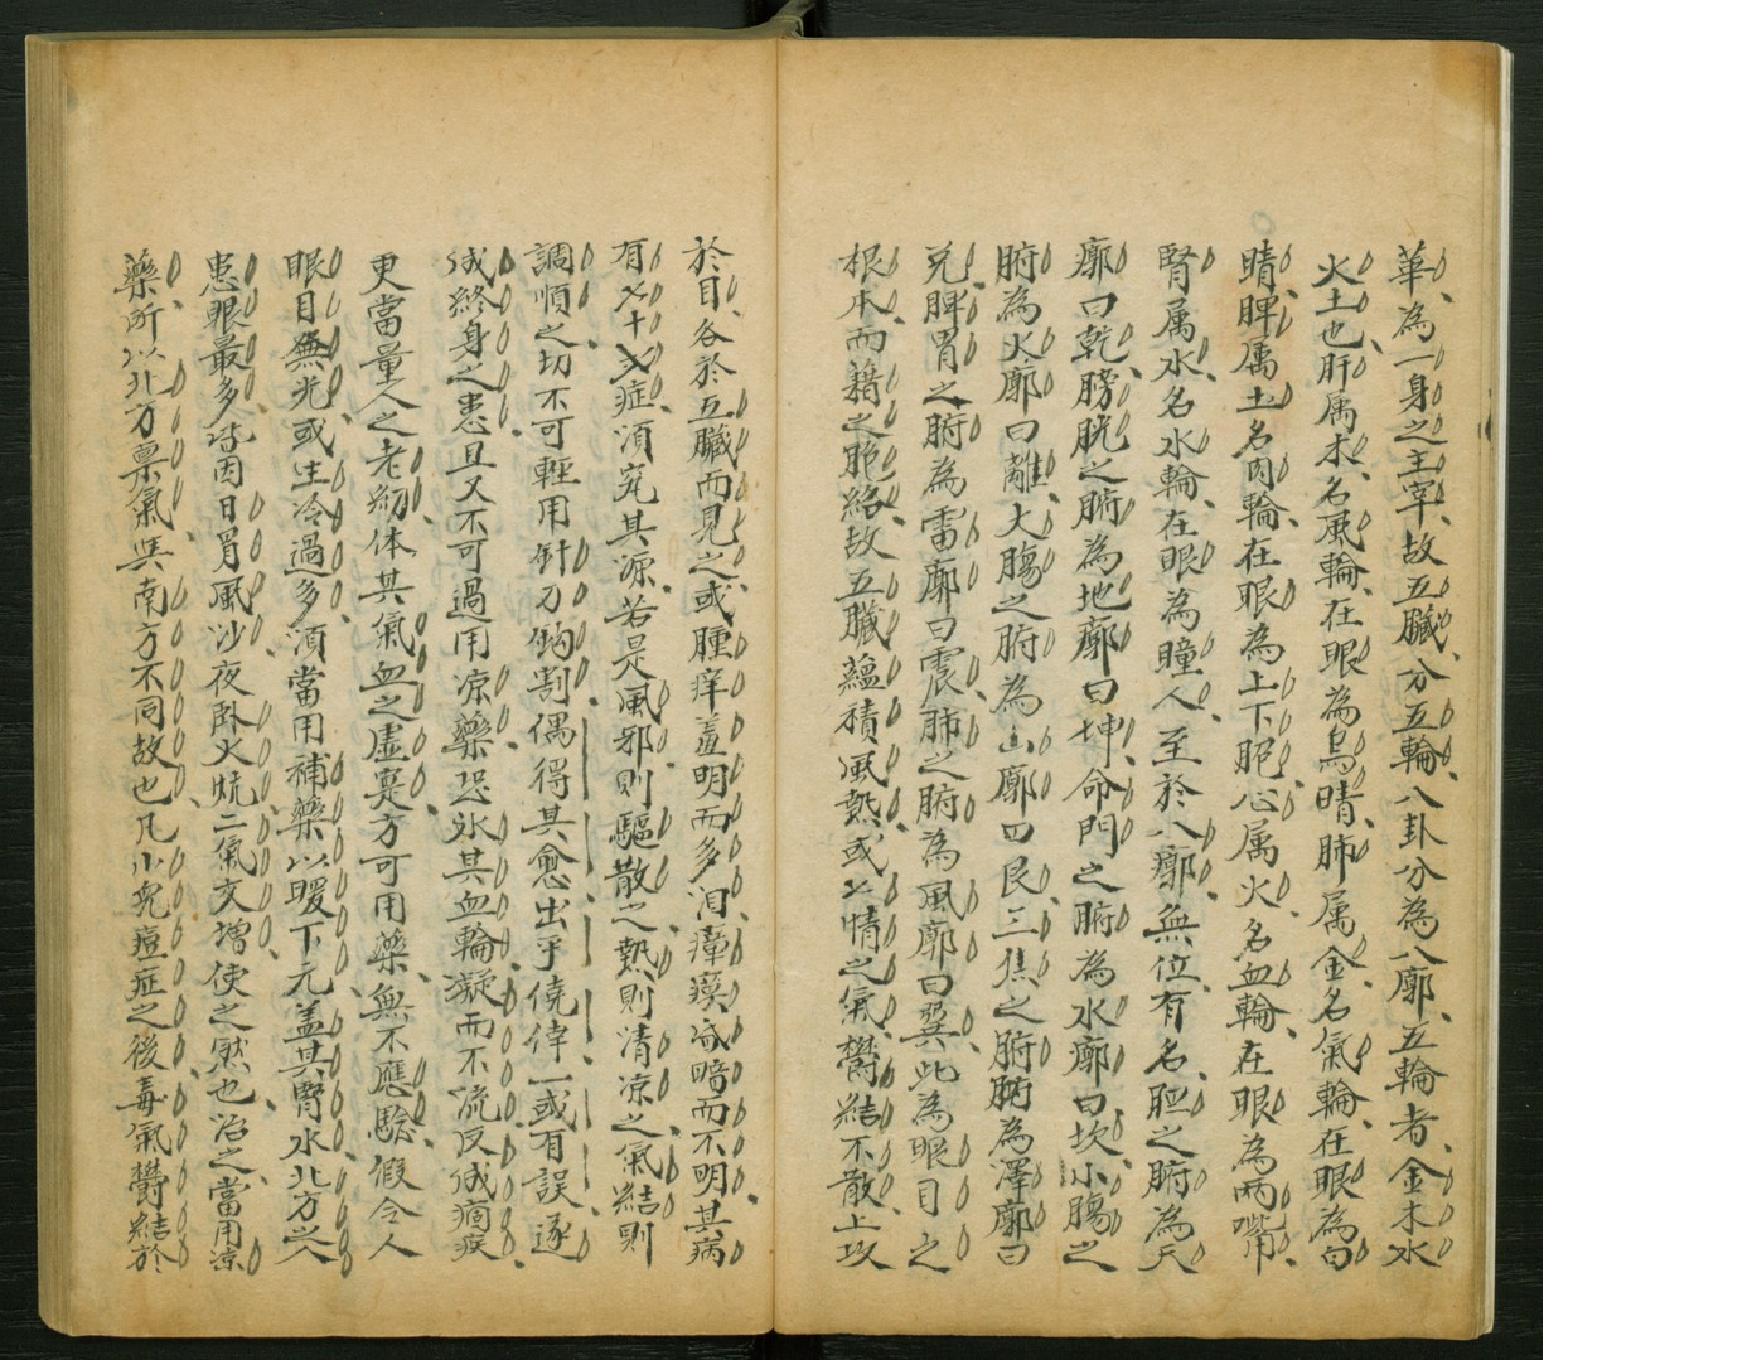 華為一身之主宰故五臟分五輪八卦分為八廓五輪者金木水
火土也肝属木名風輪在眼為烏睛肺属金名氣輪在眼為白
睛脾属土名肉輪在眼為上下胞心属火名血輪在眼為两嘴
腎属水名水輪在眼為瞳人至於八廓無位有名胆之腑為天
廓曰乾膀胱之腑為地廓曰坤命門之腑為水廓曰坎小腸之
腑為火廓曰離大腸之腑為山廓曰艮三焦之腑腑為澤廓曰
兌脾胃之腑為雷廓曰震肺之腑為風廓曰巽此為眼目之
根本而藉之胞絡故五臟蘊積風熱或七情之氣鬱結不散上攻
於目各於五臟而見之或腫痒羞明而多泪瘴瘼昏暗而不明其病
有七十二症須究其源若是風邪則驅散之熱則清凉之氣結則
調順之切不可輕用針刀鈎割偶得其愈出乎僥倖一或有誤遂
成終身之患且又不可過用凉藥恐氷其血輪凝而不流反成痼疾
更當量人之老幼体其氣血之虛寔方可用藥無不應驗假令人
眼目無光或生冷過多須當用補藥以暖下元盖其腎水北方之人
患眼最多皆因日冐風沙夜卧火炕二氣交增使之然也治之當用凉
藥所以北方禀氣與南方不同故也凡小兒痘症之後毒氣鬱結於